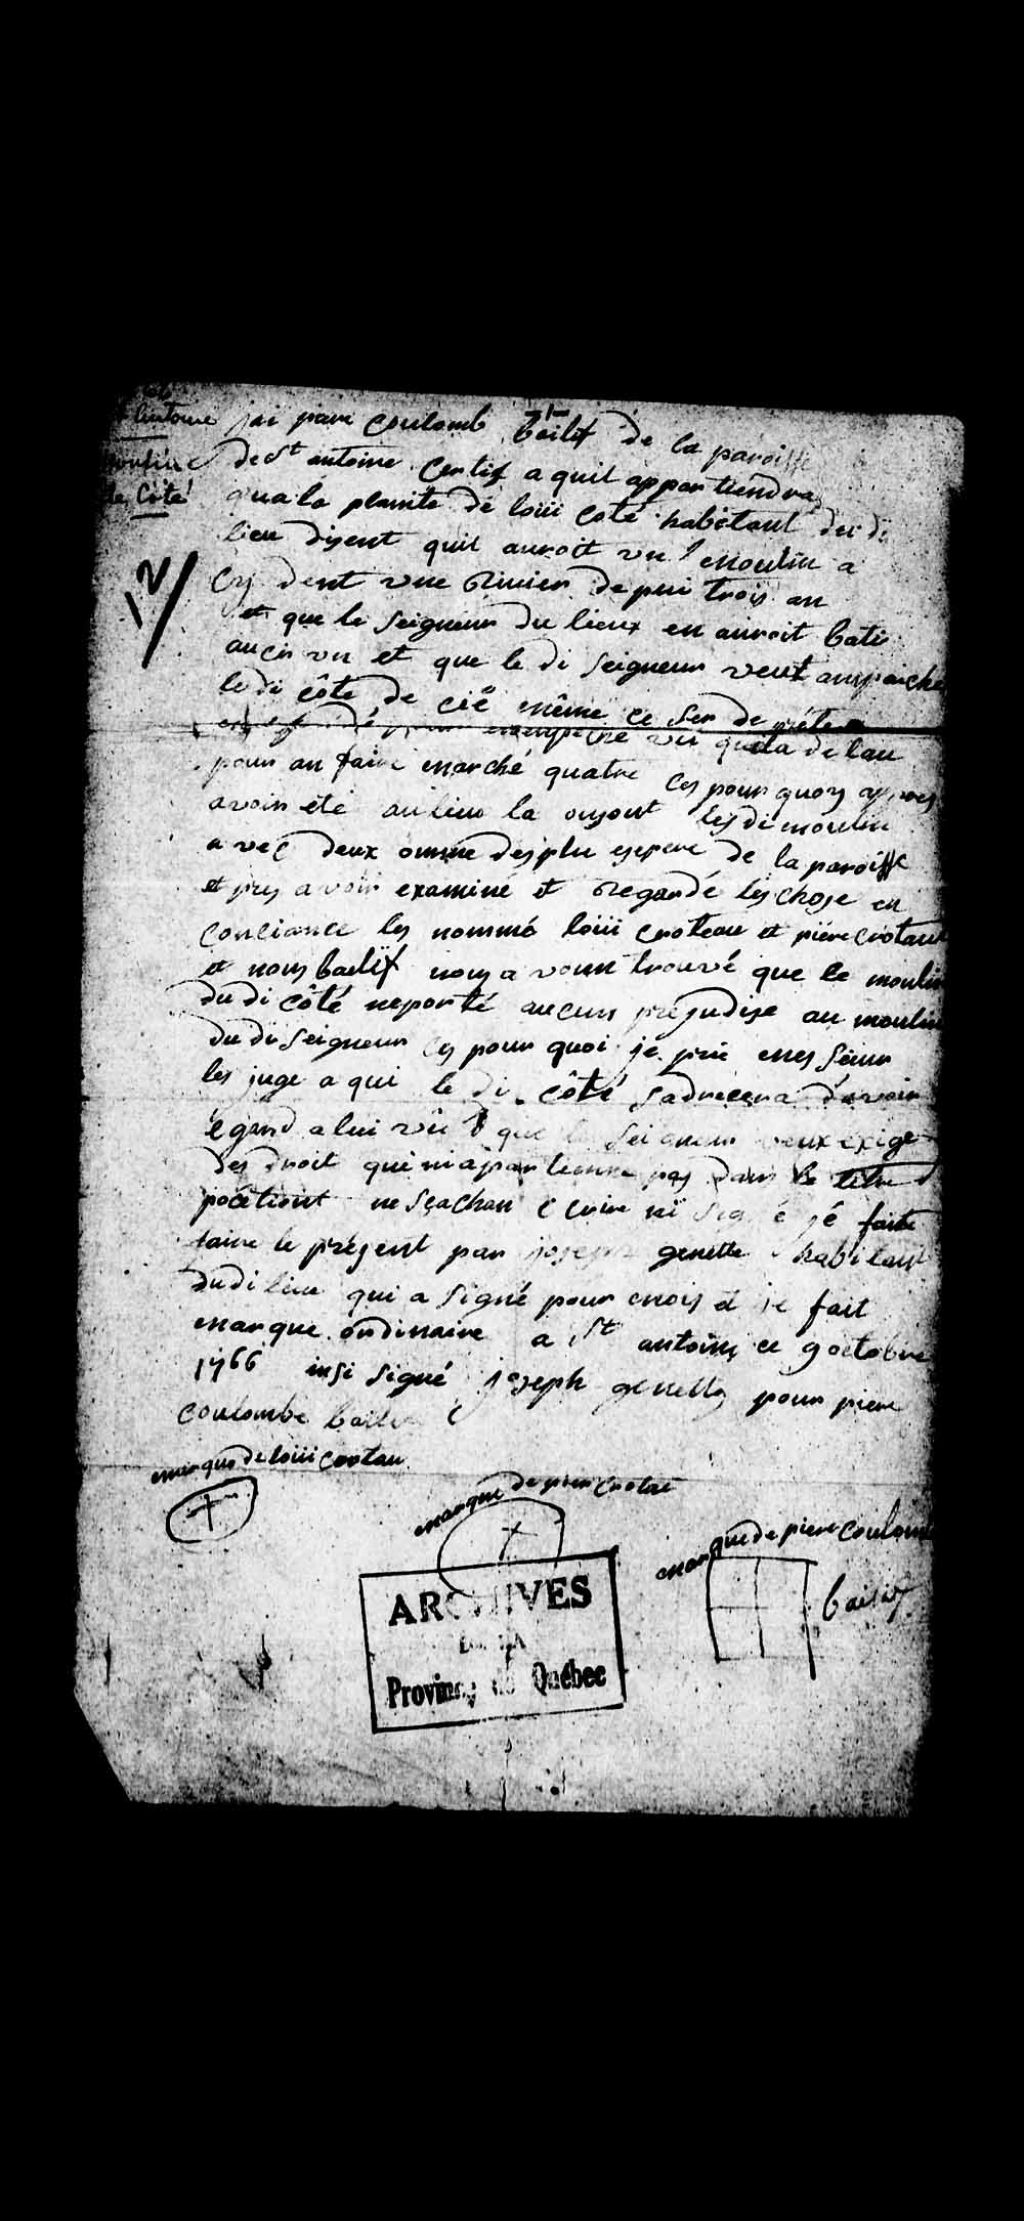 antoine
moulin
de Côté
12
jai piere Coulomb bailif de la paroisse
de St antoine Certif a quil appartiendra
qua la plainte dé loüi Coté habitant du di
lieu disent quil auroit un moulin a
Cy dent une Rivier depui trois an
et que le Seigneur du lieux en auroit bati
aucy un et que le di Seigneur veut anpaiche
le di côte de cië même ce Ser de
vü quila de lau
pour an faire marché quatre Ces pour quoy apres
avoir été au lieu la ou sont les di moulin
avec deux omme des plu espere de la paroisse
et pres avoir examiné et Regardé les chose en
conciance les nommé loüi croteau et piere crotaux
et nous bailif nous avonn trouvé que le moulin
du di côté neporté aucun prejudise au moulin
du di Seigneur Ces pour quoi je prie mes Sieur
les juge a qui le di côté Sadrecera davoir
égard a lui vü que le Seigneur veux exige
des droit qui niapartienne pas dans le titre
pocetiont ne Sçachan Ecrire ni Signé jé faite
faire le présent par joseph genette habitant
du di lieu qui a Signé pour mois et je fait
marque ordinaire a St antoine ce 9 octobre
1766 insi Signé joseph genette pour piere
coulombe bailif
marque de loüi crotau
marque de pier crotae
marque de piere coulomb
bailif
ARCHIVES
DE LA
Province de Québec